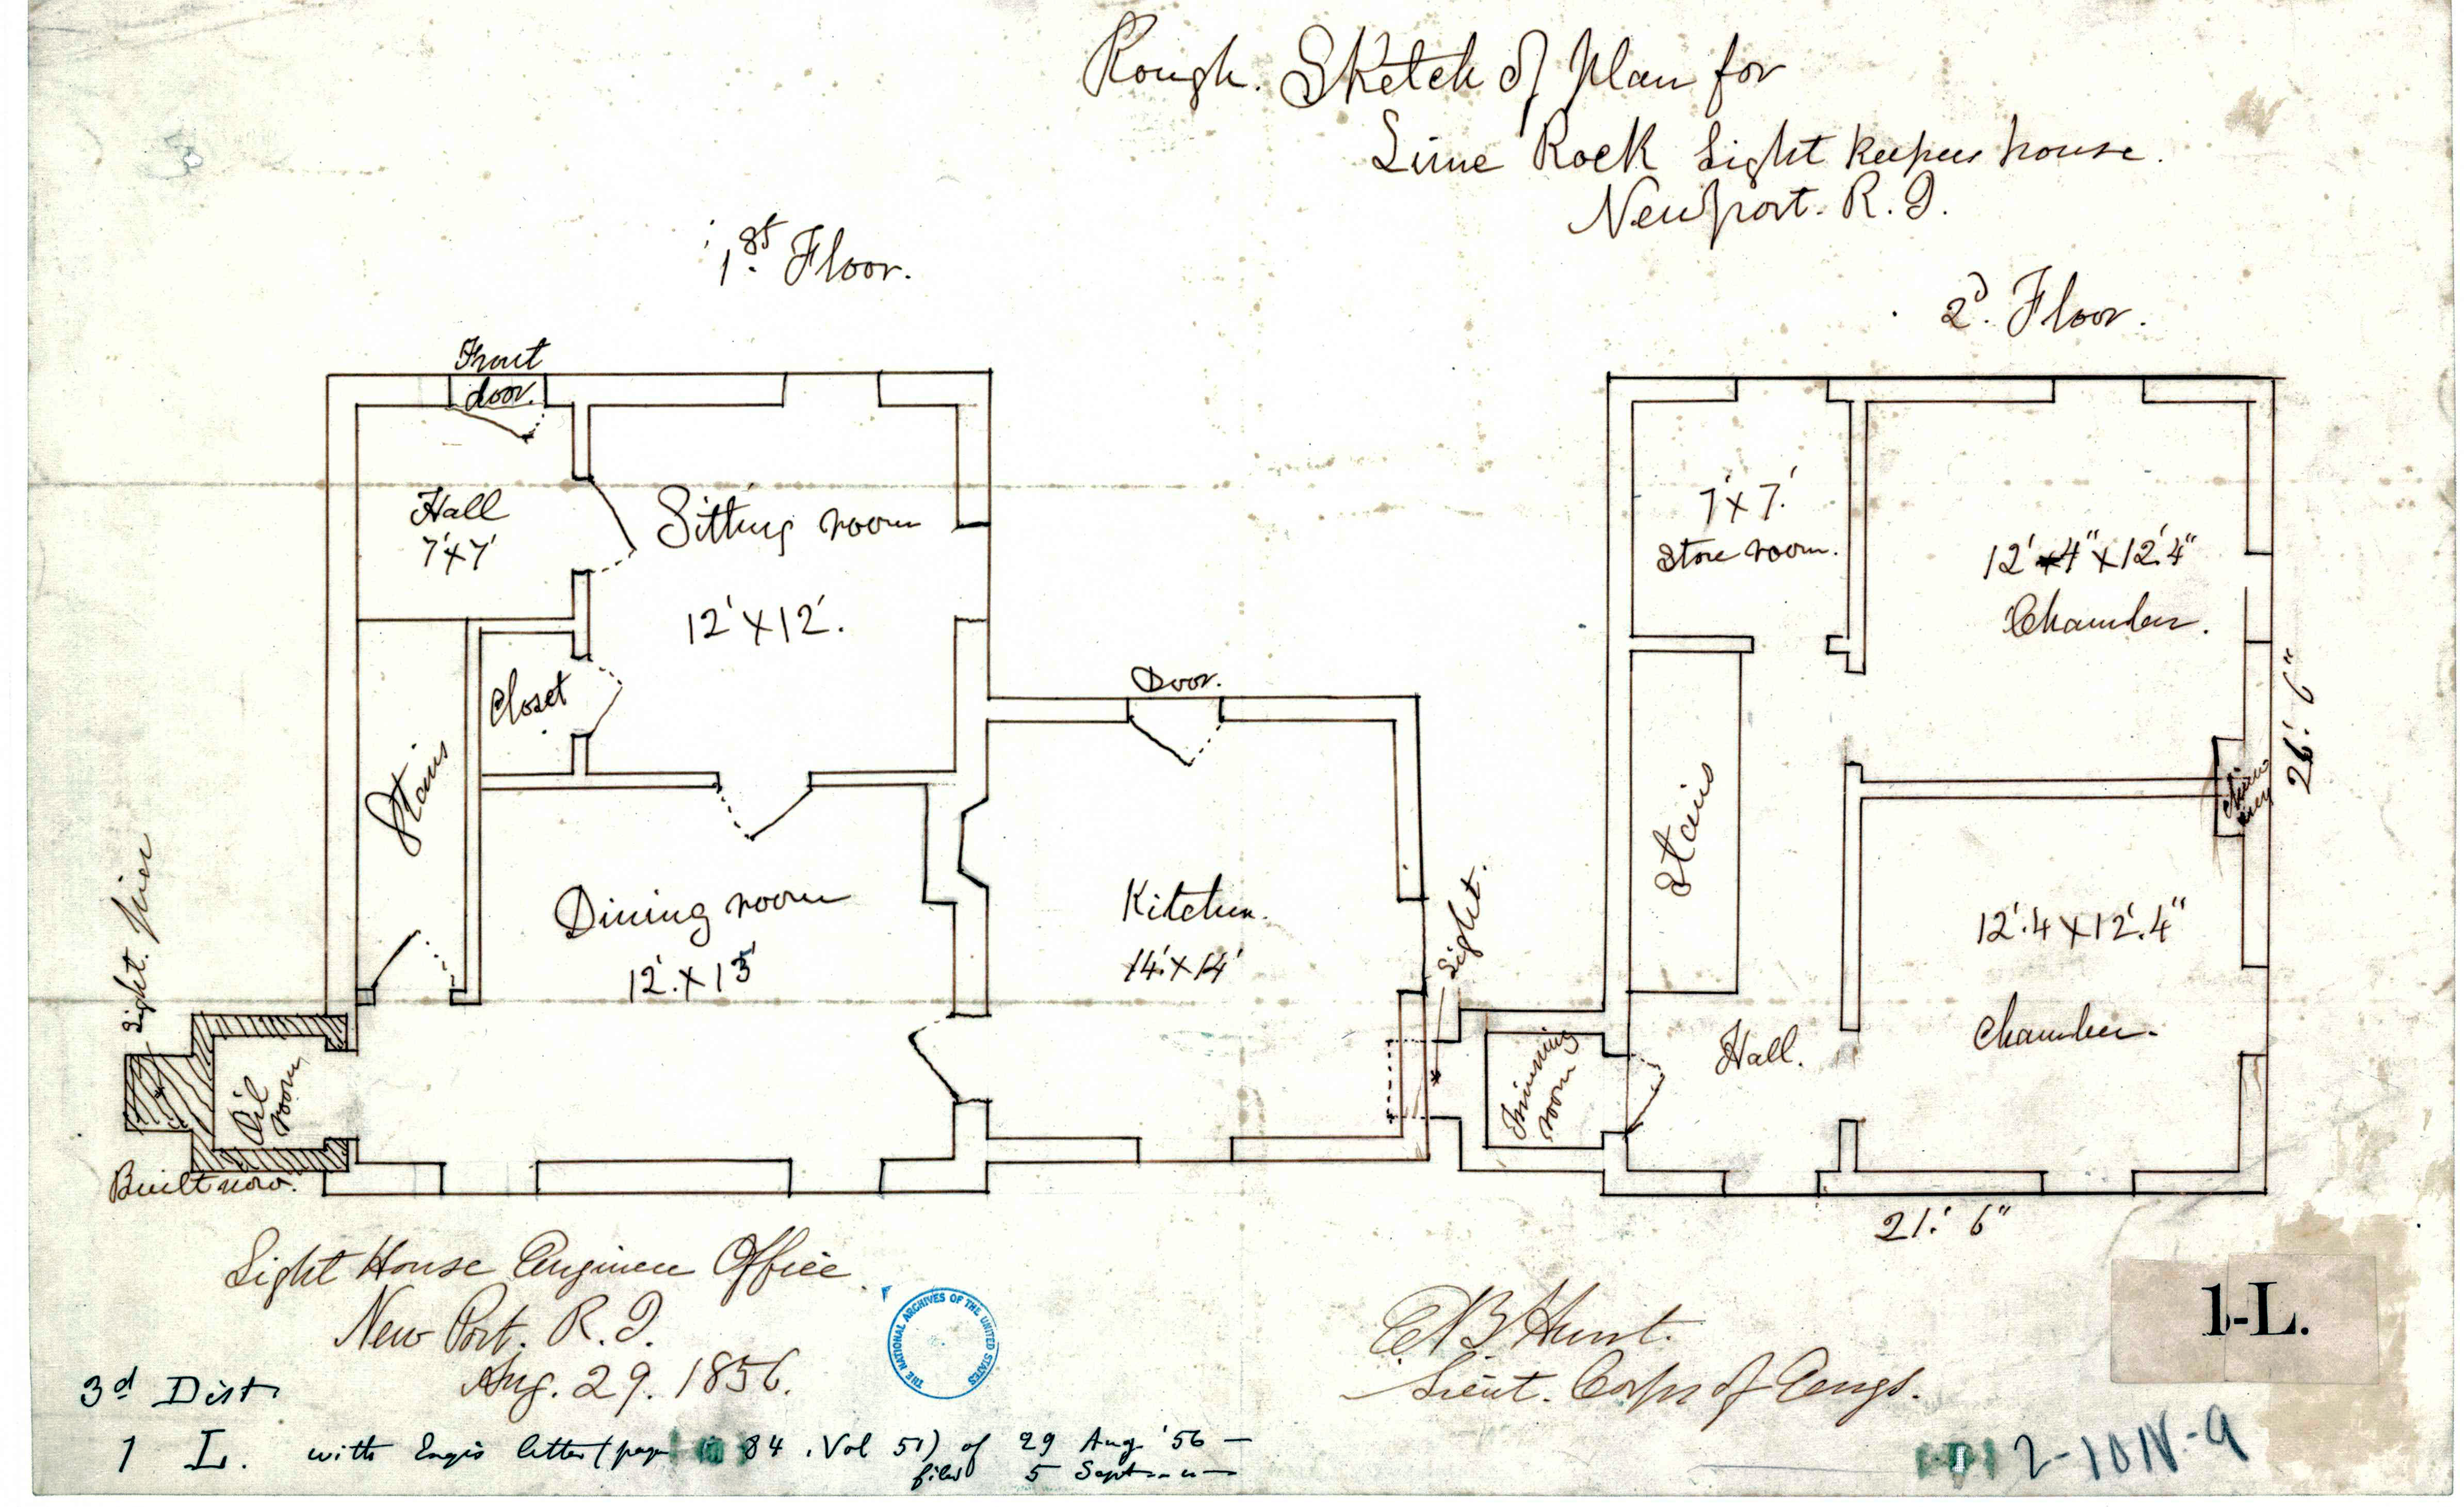 Rough. Sketch of Plan for
Lime Rock Light Keepers house.
Newport. R. I.
1st. Floor.
2d. Floor.
Front
door.
Hall
7'x7'
Sitting room
12'x12'.
Closet
Stairs
Door.
Dining room
12'.x13'
Kitchen.
14'.x14'
Light. pier
Oil
room
Built now.
7'x7.'
Store room.
12' 4"x12'.4"
Chamber.
26'. 6"
Chim
ney
Stairs
Light.
Trimming
room
Hall.
12'.4x12'.4"
Chamber.
21.' 6"
Light House Engineer Office.
New Port. R. I.
Aug. 29. 1856.
THE NATIONAL ARCHIVES OF THE UNITED STATES
E B Hunt.
Lieut. Corps of Engs.
1-L.
3d Dist.
1 L. with Engrs letter (page 84. Vol 51) of 29 Aug '56 —
filed 5 Sept